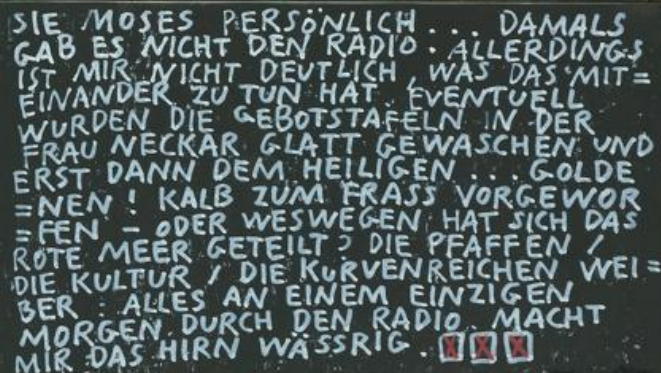 SIE MOSES PERSÖNLICH ... DAMALS
GAB ES NICHT DEN RADIO . ALLERDINGS
IST MIR NICHT DEUTLICH , WAS DAS MIT=
EINANDER ZU TUN HAT . EVENTUELL
WURDEN DIE GEBOTSTAFELN IN DER
FRAU NECKAR GLATT GEWASCHEN UND
ERST DANN DEM HEILIGEN ... GOLDE
=NEN ! KALB ZUM FRASS VORGEWOR
=FEN – ODER WESWEGEN HAT SICH DAS
ROTE MEER GETEILT ? DIE PFAFFEN /
DIE KULTUR / DIE KURVENREICHEN WEI=
BER : ALLES AN EINEM EINZIGEN
MORGEN DURCH DEN RADIO MACHT
MIR DAS HIRN WÄSSRIG . X X X